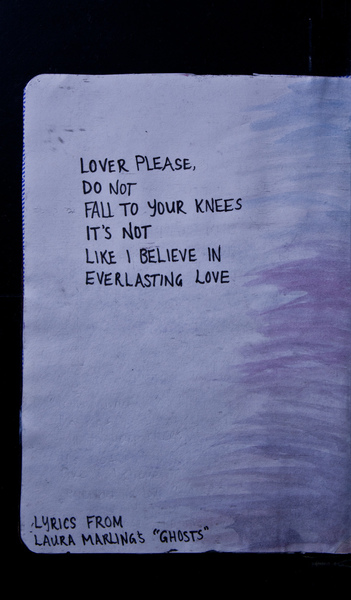 LOVER PLEASE,
DO NOT
FALL TO YOUR KNEES
IT'S NOT
LIKE I BELIEVE IN
EVERLASTING LOVE
LYRICS FROM
LAURA MARLING'S "GHOSTS"